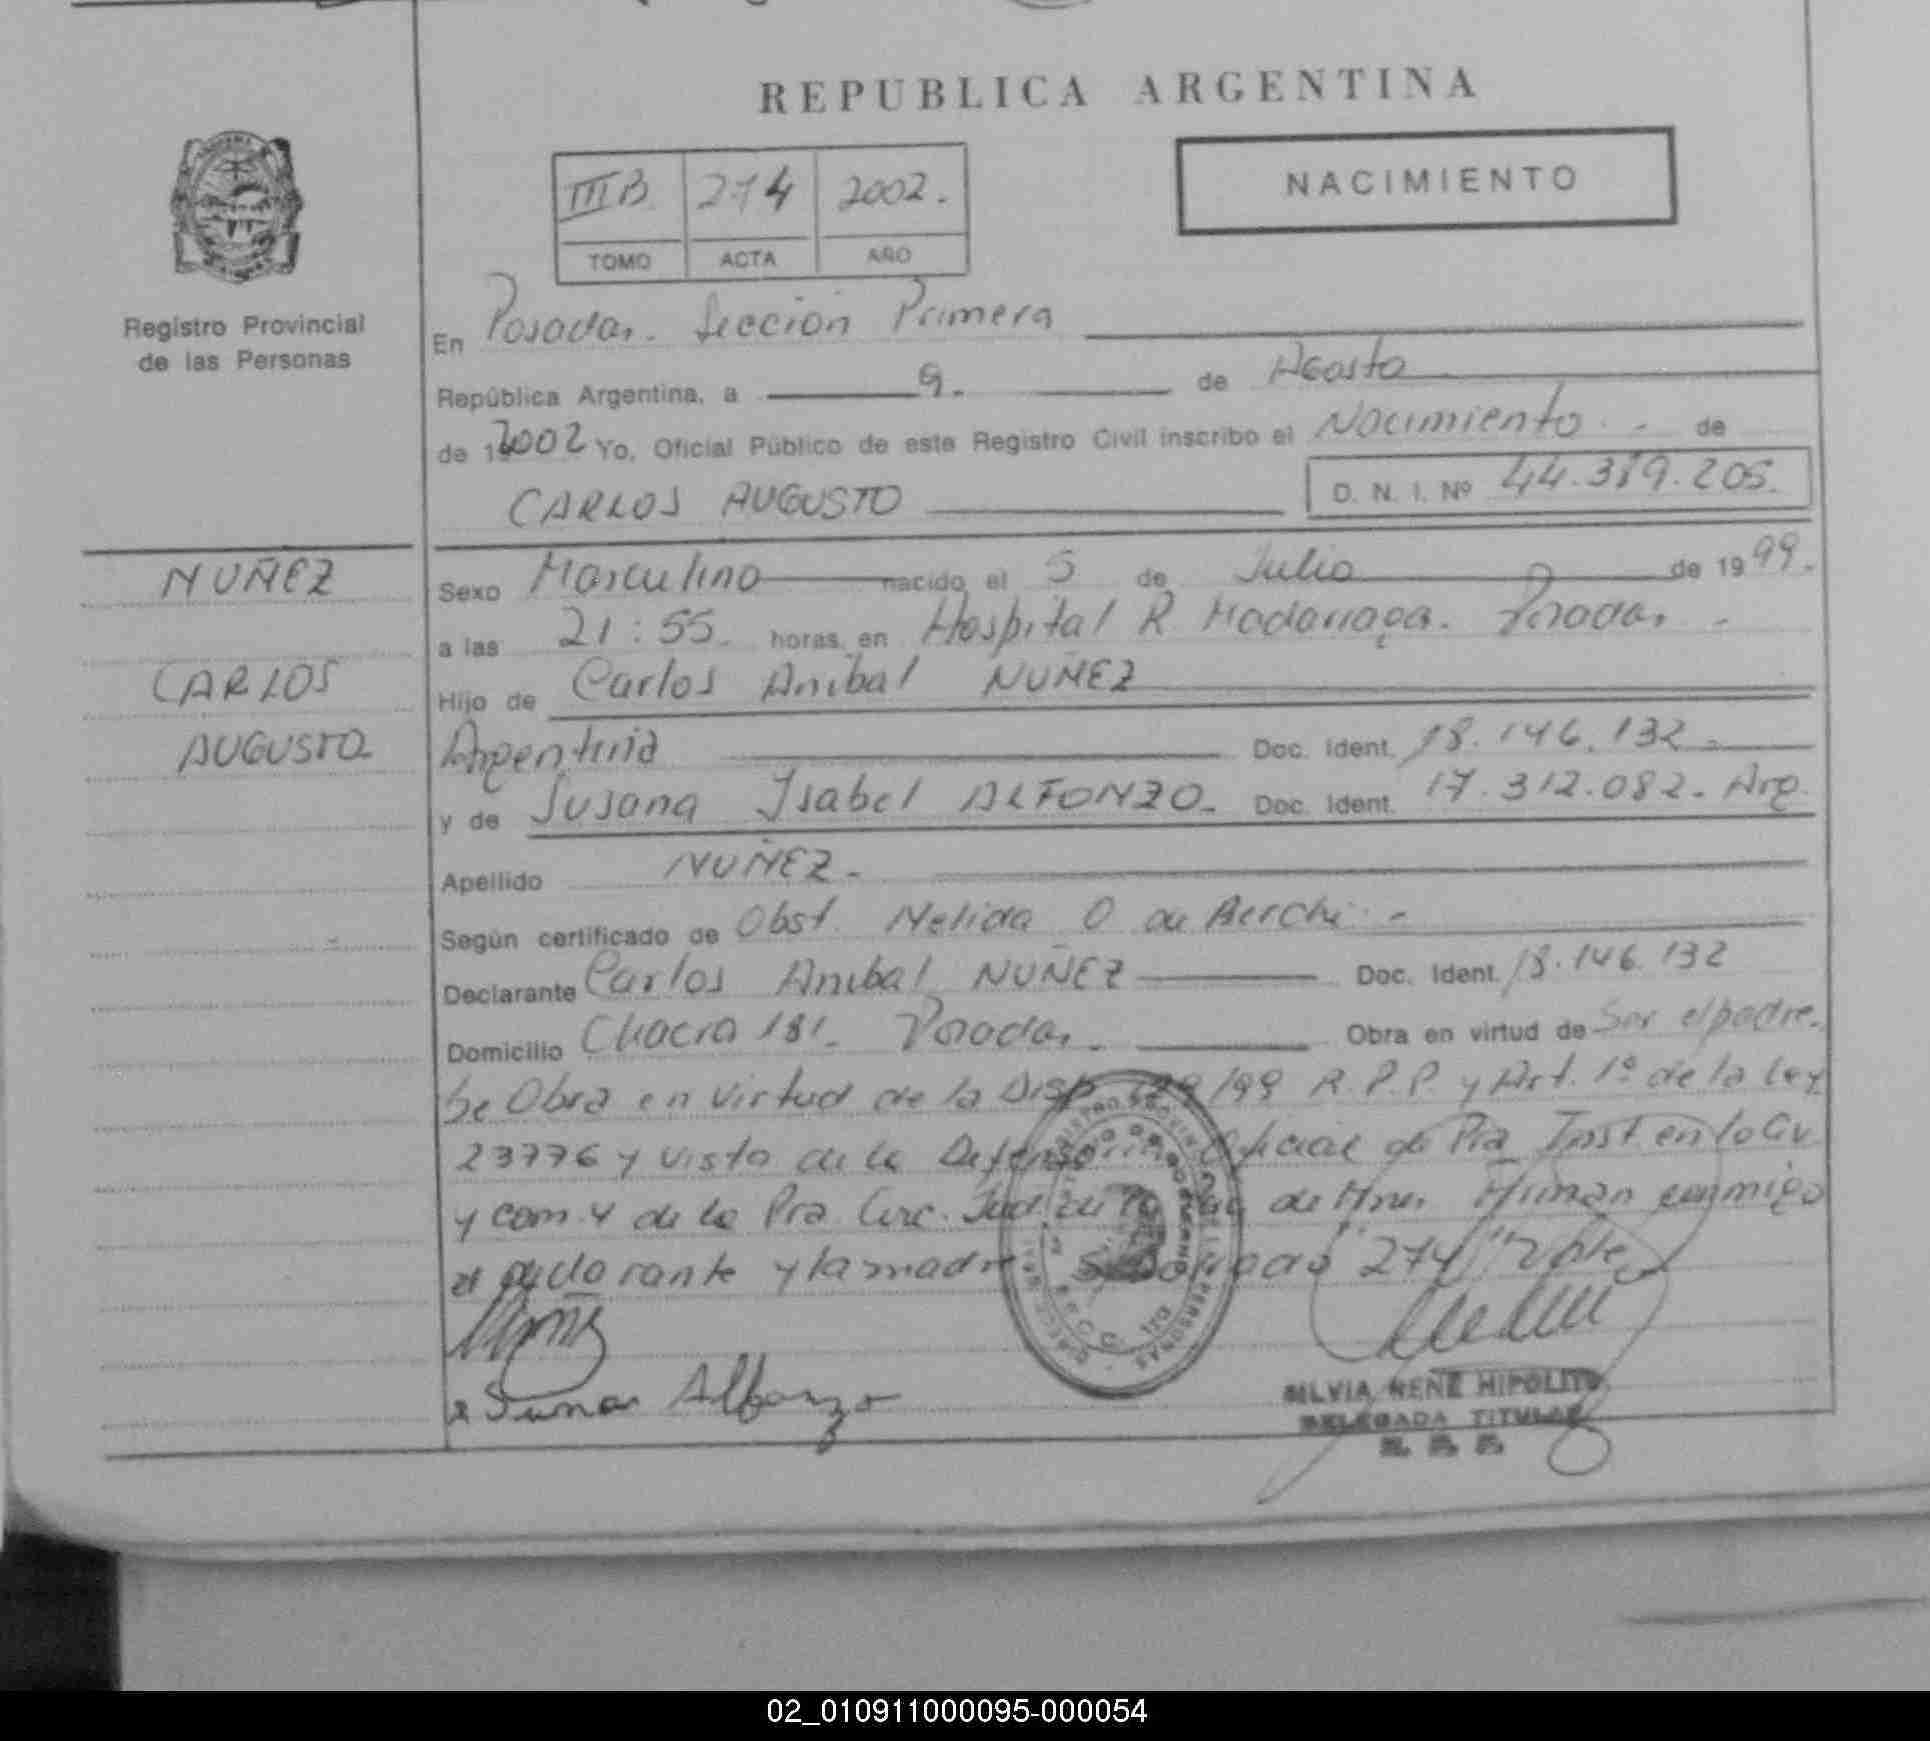 REPUBLICA ARGENTINA
NACIMIENTO
IIIB 274 2002.
TOMO ACTA AÑO
Registro Provincial
de las Personas
En Posadas. Sección Primera
República Argentina, a 9. de Agosto
de 2002 Yo, Oficial Público de este Registro Civil inscribo el Nacimiento - de
CARLOS AUGUSTO D. N. I. Nº 44.319.205.
NUÑEZ
CARLOS
AUGUSTO
Sexo Masculino nacido el 5 de Julio de 1999.
a las 21:55. horas, en Hospital R. Madariaga. Posadas -
Hijo de Carlos Anibal NUÑEZ
Argentina Doc. Ident. 18.146.132 -
y de Susana Isabel ALFONZO - Doc. Ident. 17.312.082. Arg.
Apellido NUÑEZ -
Según certificado de Obst. Nelida O de -
Declarante Carlos Anibal NUÑEZ Doc. Ident. 18.146.132
Domicilio Chacra 181. Posadas. Obra en virtud de Ser el padre.
Se Obra en virtud de la Disp /99 R.P.P. y Art. 1º de la Ley
23776 y vista de la Oficial de Pra Inst en lo Civ
y Com. 4 de la Pra Circ. Jud de de Mnes. Firman conmigo
el declarante y la madre 274 Vale
Alfonzo
SILVIA RENE HIPOLITO
DELEGADA TITULAR
02_010911000095-000054